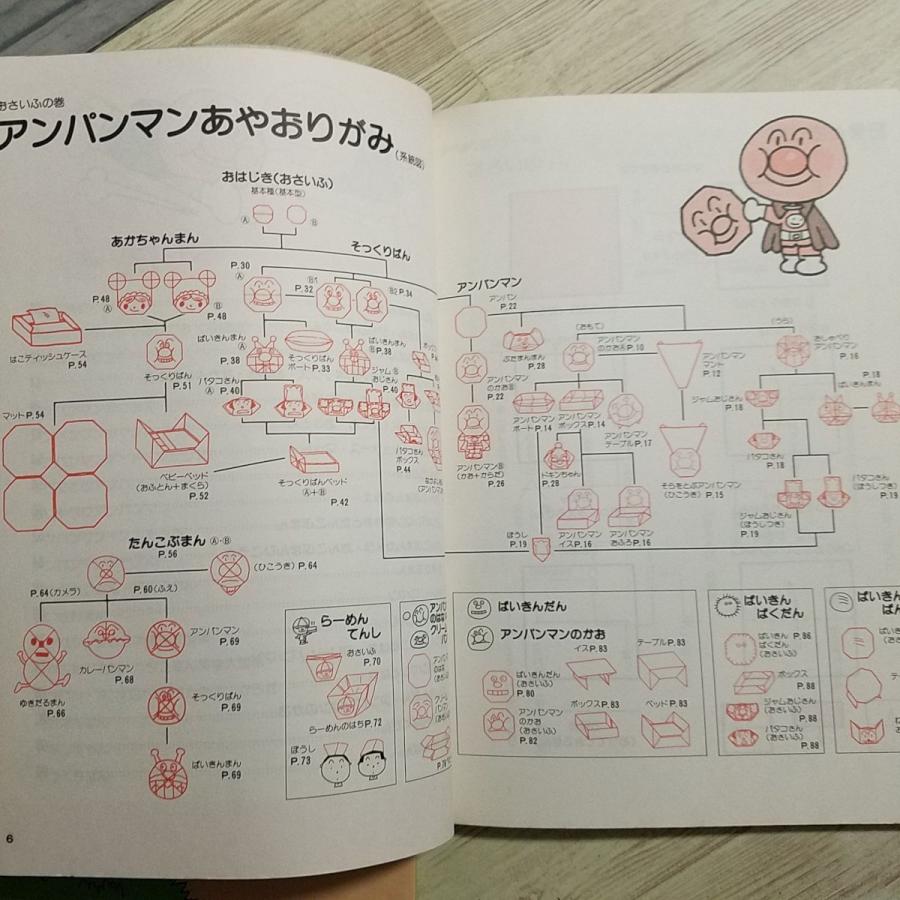 おさいふの巻
アンパンマンあやおりがみ
(系統図)
おはじき(おさいふ)
基本種(基本型)
Ⓐ
Ⓑ
あかちゃんまん
そっくりぱん
P.48
Ⓐ
Ⓑ
P.48
P.30
Ⓐ
Ⓑ1
P.32
Ⓑ2 P.34
はこティッシュケース
P.54
そっくりぱん
P.51
ばいきんまん
Ⓐ
P.38
そっくりぱん
ボート P.33
ばいきんまん
Ⓑ P.38
バタコさん
Ⓐ P.40
ジャム Ⓑ
おじさん
P.40
マット P.54
ベビーベッド
(おふとん+まくら)
P.52
そっくりぱんベッド
(Ⓐ+Ⓑ)
P.42
バタコさん
ボックス
P.44
たんこぶまん Ⓐ・Ⓑ
P.56
(ひこうき) P.64
P.64(カメラ)
P.60(ふえ)
ゆきだるまん
P.66
カレーパンマン
P.68
アンパンマン
P.69
そっくりぱん
P.69
ばいきんまん
P.69
らーめん
てんし
おさいふ
P.70
らーめんのはち P.72
ぼうし
P.73
6
アンパンマン
アンパン
P.22
アンパンマン
のかおⒷ
P.22
アンパンマンⒷ
(かお+からだ)
P.26
ぶたまんまん
P.28
(おもて)
アンパンマン
のかおⒶ P.10
アンパンマン
ボート P.14
アンパンマン
ボックス P.14
アンパンマン
テーブル P.17
ドキンちゃん
P.28
アンパンマン
イス P.16
アンパンマン
おふろ P.16
ぼうし
P.19
アンパンマン
マント
P.12
そらをとぶアンパンマン
(ひこうき) P.15
(うら)
おしゃべり
アンパンマン
P.16
ジャムおじさん
P.18
P.18
ばいきんまん
バタコさん
P.18
ジャムおじさん
(ぼうしつき)
P.19
バタコさん
(ぼうしつき)
P.19
ばいきんだん
アンパンマンのかお
ばいきんだん
(おさいふ)
P.80
アンパンマン
のかお
(おさいふ)
P.82
イス P.83
テーブル P.83
ボックス P.83
ベッド P.83
ばいきん
ばくだん
ばいきん P.86
ばくだん
(おさいふ)
ボックス
P.88
ジャムおじさん
(おさいふ)
P.88
バタコさん
(おさいふ)
P.88